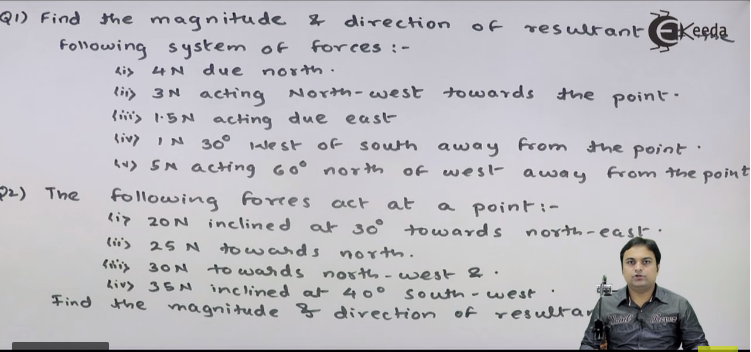 Q1) Find the magnitude & direction of resultant
following system of forces :-
(i) 4N due north.
(ii) 3N acting North-west towards the point.
(iii) 1.5N acting due east
(iv) 1N 30° West of south away from the point.
(v) 5N acting 60° north of west away from the point
Q2) The following forces act at a point :-
(i) 20N inclined at 30° towards north-east.
(ii) 25 N towards north.
(iii) 30N towards north-west & .
(iv) 35N inclined at 40° south-west.
Find the magnitude & direction of resultan
Ekeeda